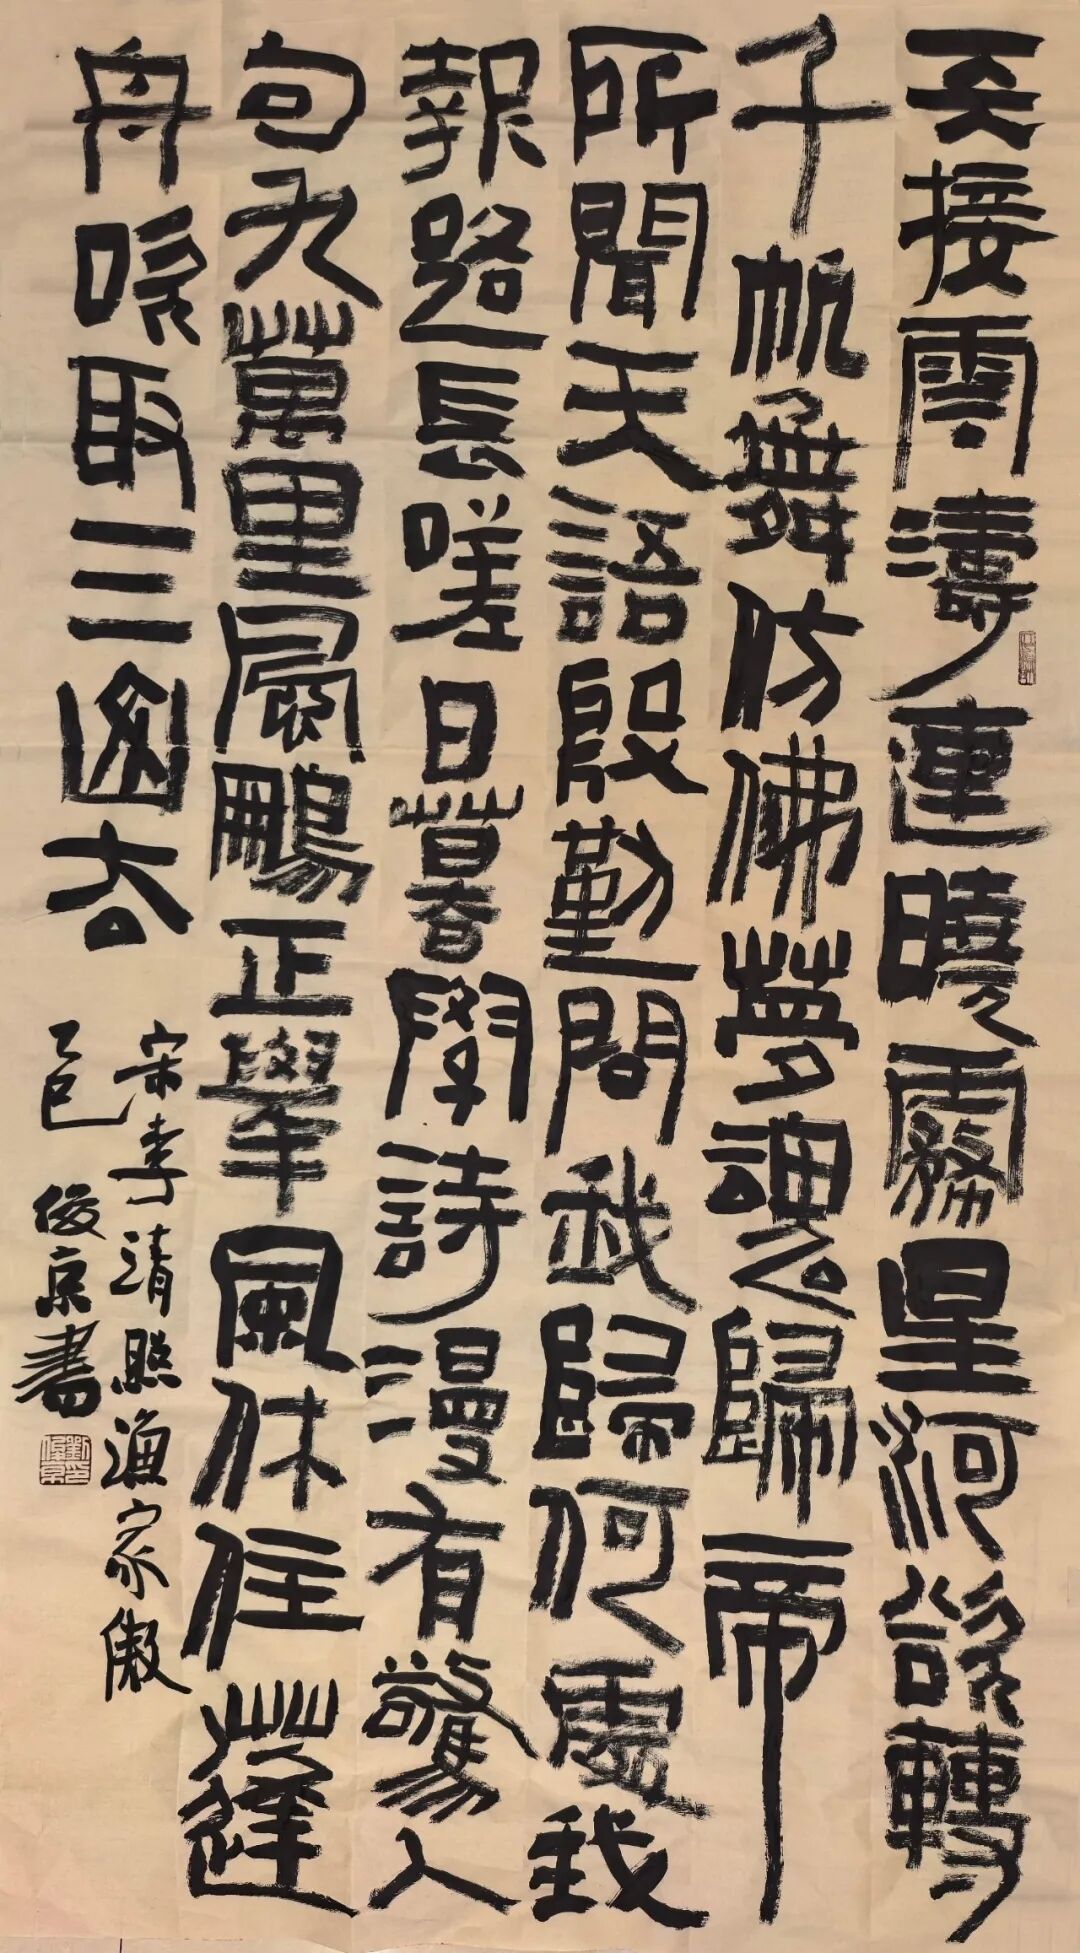 天接雲濤連曉霧星河欲轉
千帆舞仿佛夢魂歸帝
所聞天語殷勤問我歸何處我
報路長嗟日暮學詩漫有驚人
句九萬里風鵬正舉風休住蓬
舟吹取三山去
宋李清照漁家傲
乙巳 俊京書
劉俊京印